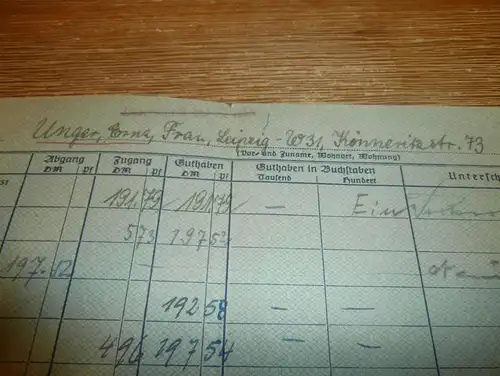 Unger, Erna, Frau, Leipzig-W31, Könneritzstr. 73
(Vor- und Zuname, Wohnort, Wohnung)
Abgang Zugang Guthaben Guthaben in Buchstaben Unterschr
DM Pf DM Pf DM Pf Tausend Hundert
191 79 191 79 —
5 73 197 52
197 52 —
192 58 — —
4 96 197 54 — —